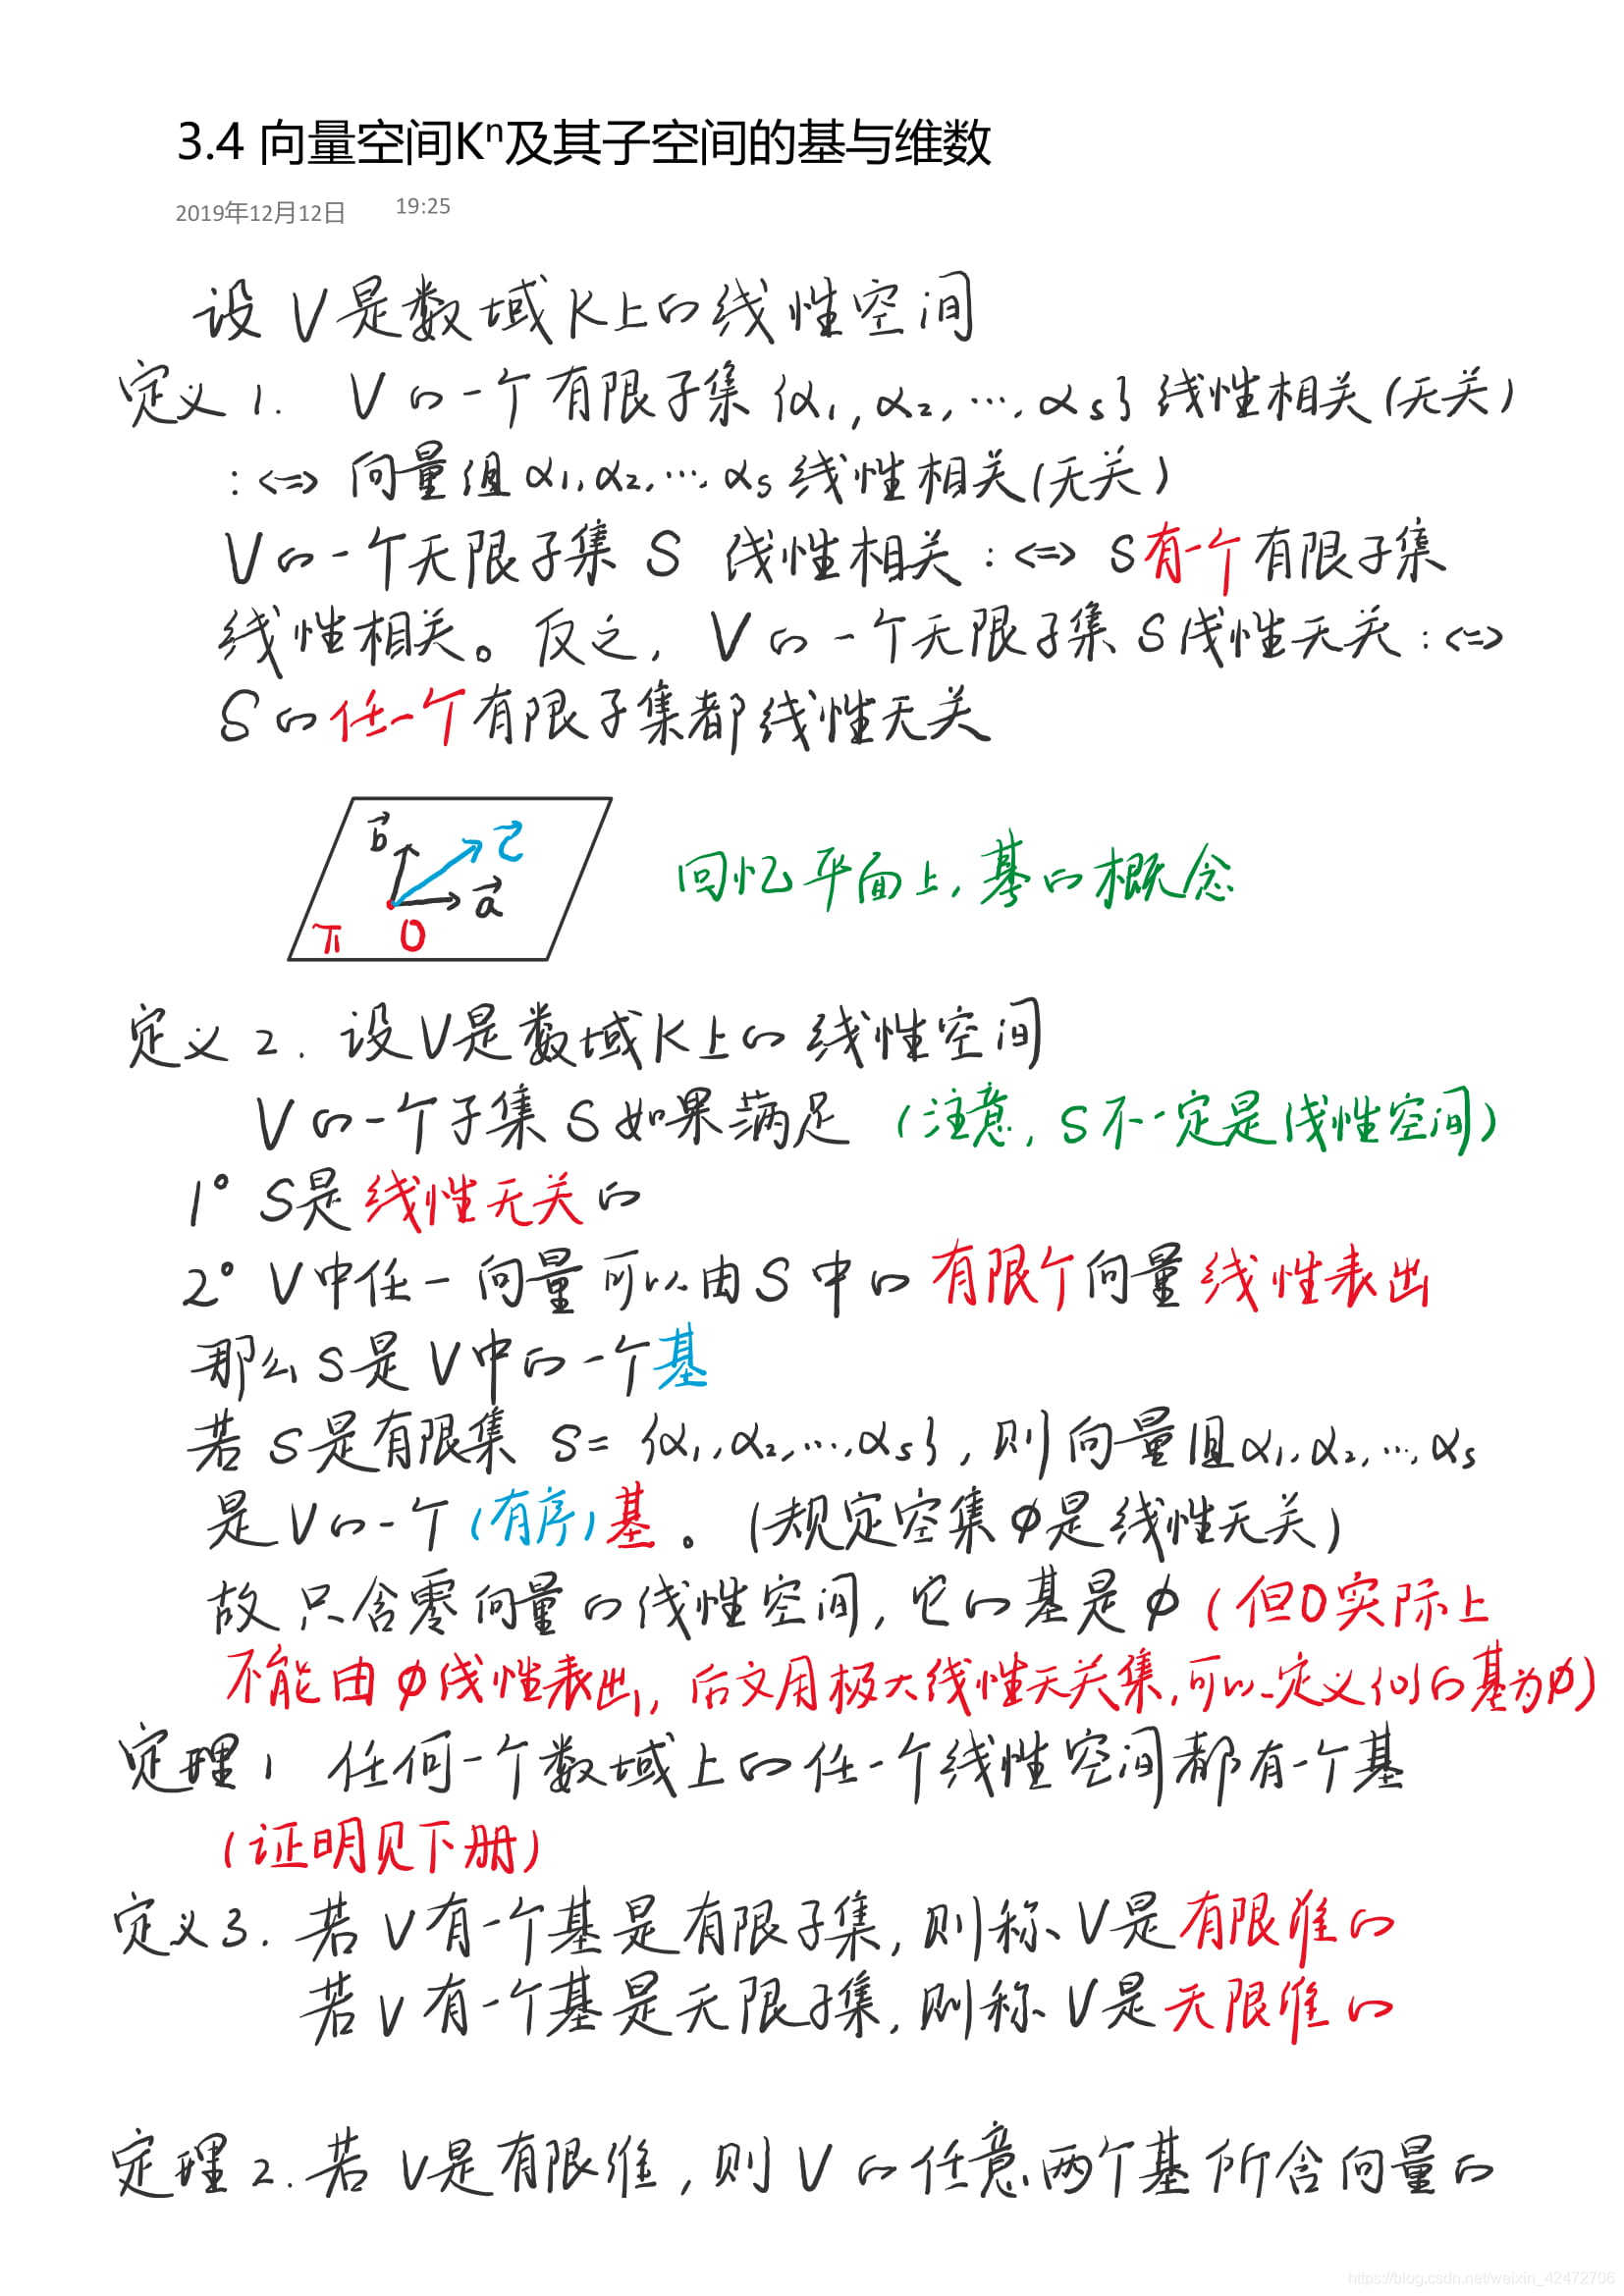 3.4 向量空间Kⁿ及其子空间的基与维数
2019年12月12日 19:25
设 V是数域K上的线性空间
定义1. V的一个有限子集{α₁,α₂,…,αₛ}线性相关(无关)
:<=> 向量组α₁,α₂,…,αₛ线性相关(无关)
V的一个无限子集 S 线性相关:<=> S有一个有限子集
线性相关。反之, V的一个无限子集S线性无关:<=>
S的任一个有限子集都线性无关
b⃗ c⃗
a⃗
π 0
回忆平面上,基的概念
定义2. 设V是数域K上的线性空间
V的一个子集S如果满足 (注意, S不一定是线性空间)
1° S是线性无关的
2° V中任一向量可以由S中的有限个向量线性表出
那么S是V中的一个基
若S是有限集 S={α₁,α₂,…,αₛ},则向量组α₁,α₂,…,αₛ
是V的一个(有序)基。(规定空集∅是线性无关)
故只含零向量的线性空间,它的基是∅(但0实际上
不能由∅线性表出,后文用极大线性无关集,可以定义{0}的基为∅)
定理1 任何一个数域上的任一个线性空间都有一个基
(证明见下册)
定义3. 若V有一个基是有限子集,则称V是有限维的
若V有一个基是无限子集,则称V是无限维的
定理2.若V是有限维,则V的任意两个基所含向量的
https://blog.csdn.net/weixin_42472706